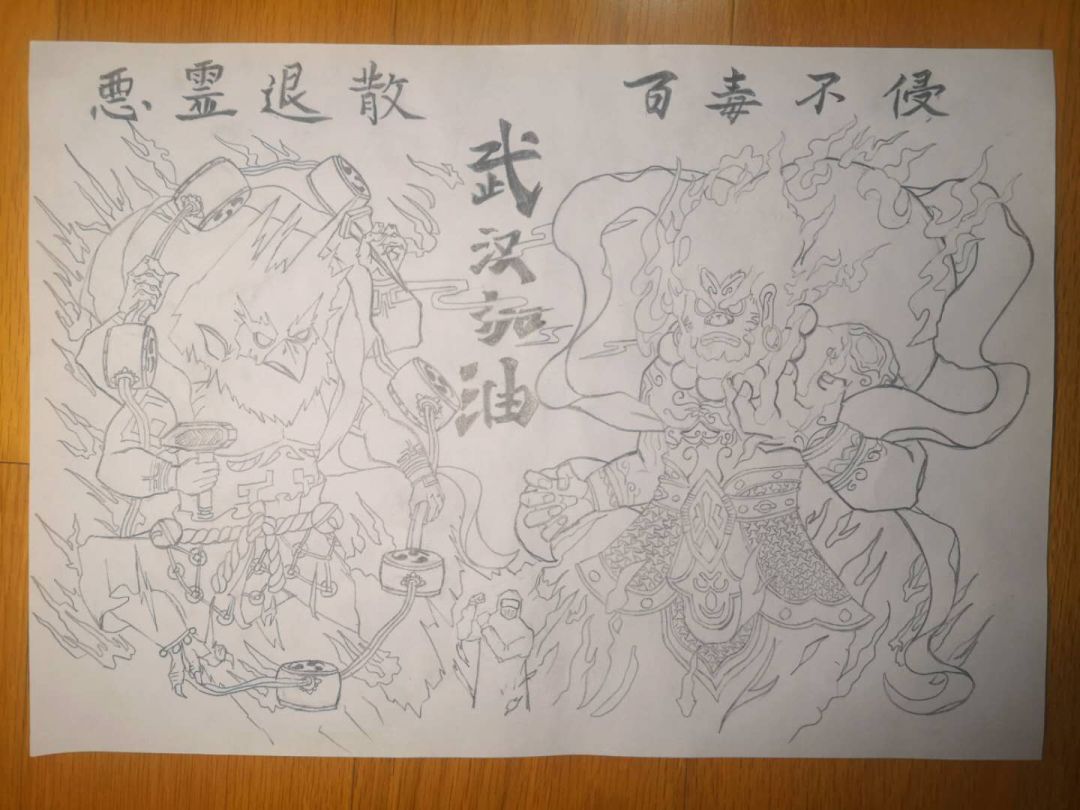 悪霊退散
百毒不侵
武汉加油